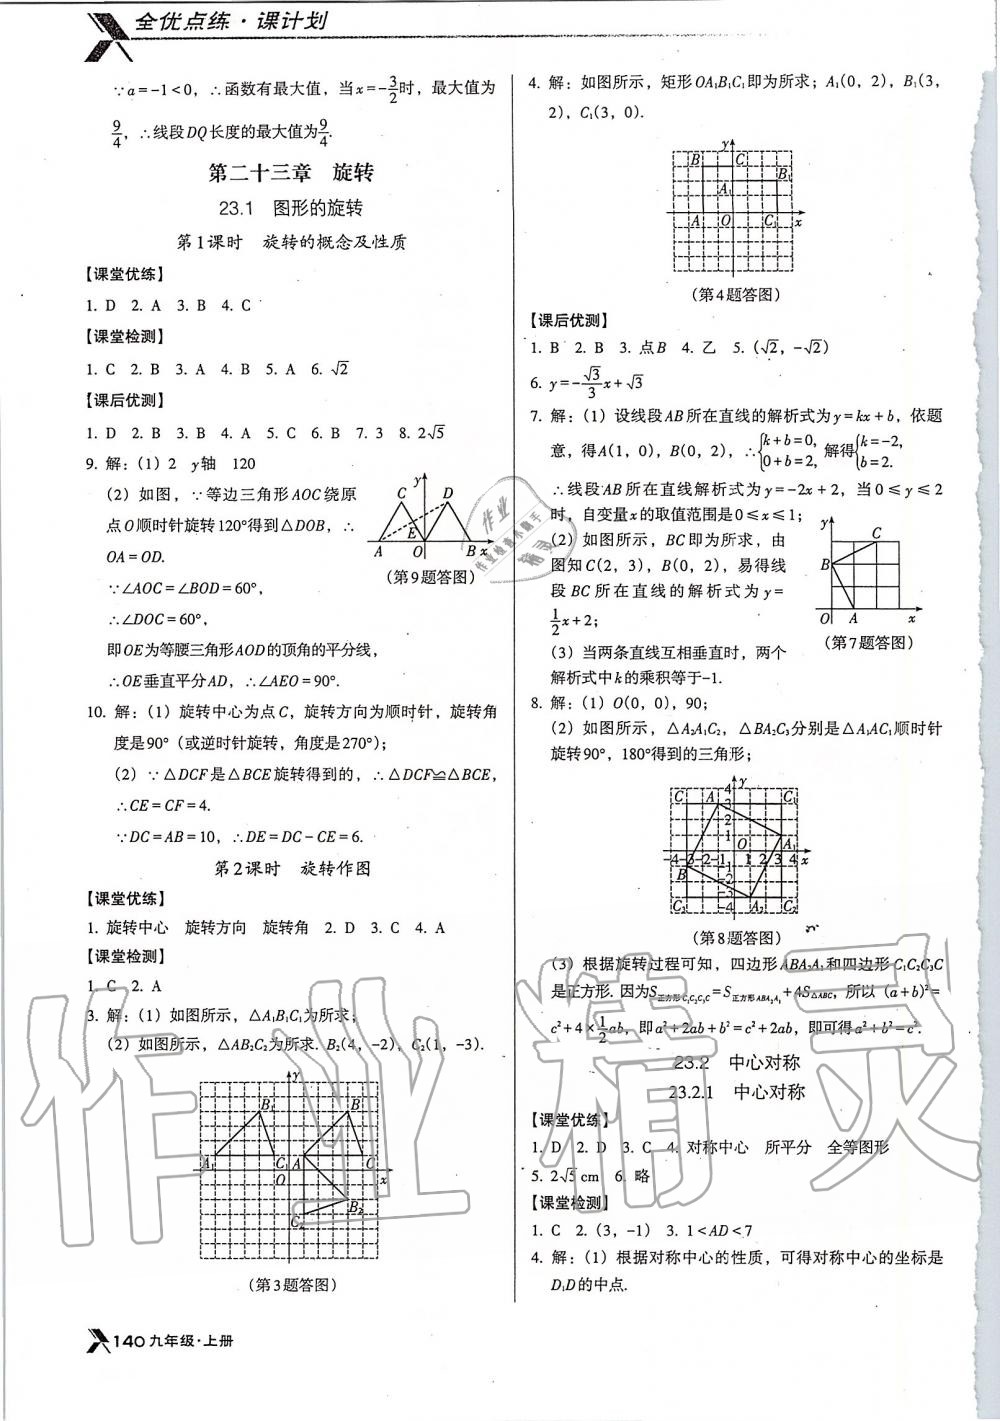 全优点练·课计划
∵a=-1<0，∴函数有最大值，当x=-3/2时，最大值为
9/4，∴线段DQ长度的最大值为9/4.
第二十三章　旋转
23.1　图形的旋转
第1课时　旋转的概念及性质
【课堂优练】
1. D　2. A　3. B　4. C
【课堂检测】
1. C　2. B　3. A　4. B　5. A　6. √2
【课后优测】
1. D　2. B　3. B　4. A　5. C　6. B　7. 3　8. 2√5
9. 解：（1）2　y轴　120
（2）如图，∵等边三角形AOC绕原
点O顺时针旋转120°得到△DOB，∴
OA=OD.
∵∠AOC=∠BOD=60°，
∴∠DOC=60°，
即OE为等腰三角形AOD的顶角的平分线，
∴OE垂直平分AD，∴∠AEO=90°.
y
C
D
E
A
O
B
x
（第9题答图）
10. 解：（1）旋转中心为点C，旋转方向为顺时针，旋转角
度是90°（或逆时针旋转，角度是270°）；
（2）∵△DCF是△BCE旋转得到的，∴△DCF≌△BCE，
∴CE=CF=4.
∵DC=AB=10，∴DE=DC-CE=6.
第2课时　旋转作图
【课堂优练】
1. 旋转中心　旋转方向　旋转角　2. D　3. C　4. A
【课堂检测】
1. C　2. A
3. 解：（1）如图所示，△A₁B₁C₁为所求；
（2）如图所示，△AB₂C₂为所求. B₂(4，-2)，C₂(1，-3).
y
B₁
B
A₁
C₁
A
C
O
x
B₂
C₂
（第3题答图）
140 九年级·上册
4. 解：如图所示，矩形OA₁B₁C₁即为所求；A₁(0，2)，B₁(3，
2)，C₁(3，0).
y
B
C
A₁
B₁
A
O
C₁
x
（第4题答图）
【课后优测】
1. B　2. B　3. 点B　4. 乙　5.（√2，-√2）
6. y=-√3/3x+√3
7. 解：（1）设线段AB所在直线的解析式为y=kx+b，依题
意，得A(1，0)，B(0，2)，∴{k+b=0，0+b=2，解得{k=-2，b=2.
∴线段AB所在直线解析式为y=-2x+2，当0≤y≤2
时，自变量x的取值范围是0≤x≤1；
（2）如图所示，BC即为所求，由
图知C(2，3)，B(0，2)，易得线
段BC所在直线的解析式为y=
1/2x+2；
（3）当两条直线互相垂直时，两个
解析式中k的乘积等于-1.
y
C
B
O
A
x
（第7题答图）
8. 解：（1）O(0，0)，90；
（2）如图所示，△A₂A₁C₂，△BA₂C₃分别是△A₁AC₁顺时针
旋转90°，180°得到的三角形；
y
4
C
A
3
C₁
2
1
O
A₁
-4 -3 -2 -1
1 2 3 4 x
-1
B
-2
-3
C₃
-4
A₂
C₂
（第8题答图）
（3）根据旋转过程可知，四边形ABA₂A₁和四边形C₁C₂C₃C
是正方形. 因为S正方形C₁C₂C₃C=S正方形ABA₂A₁+4S△ABC，所以（a+b）²=
c²+4×1/2ab，即a²+2ab+b²=c²+2ab，即可得a²+b²=c².
23.2　中心对称
23.2.1　中心对称
【课堂优练】
1. D　2. D　3. C　4. 对称中心　所平分　全等图形
5. 2√5 cm　6. 略
【课堂检测】
1. C　2.（3，-1）　3. 1<AD<7
4. 解：（1）根据对称中心的性质，可得对称中心的坐标是
D₁D的中点.
作业精灵